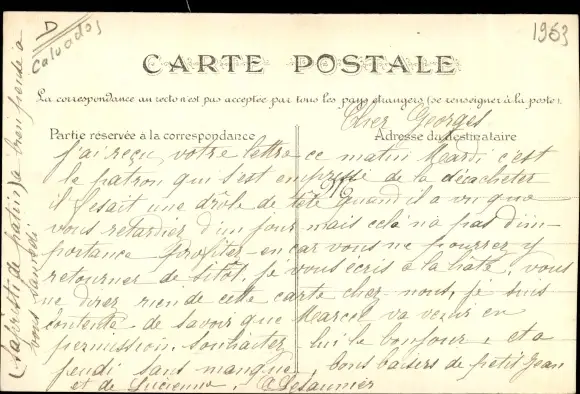 D
Calvados
1953
CARTE POSTALE
La correspondance au recto n'est pas acceptée par tous les pays étrangers (se renseigner à la poste).
Partie réservée a la correspondance
Adresse du destinataire
Cher Georges
j'ai reçu votre lettre ce matin Mardi c'est
le patron qui s'est empressé de la décacheter
il fesait une drôle de tête quand il a vu que
916
vous retardier d'un jour mais celà n'a pas d'im-
portance profiter-en car vous ne pourrez y
retourner de sitôt, je vous écris à la hâte, vous
ne direz rien de cette carte chez nous, je suis
contente de savoir que Marcel va venir en
permission. Souhaitez lui le bonjour, et a
jeudi sans manque, bons baisers de petit Jean
et de Lucienne.
(la de patin) a bien prendre a
vous